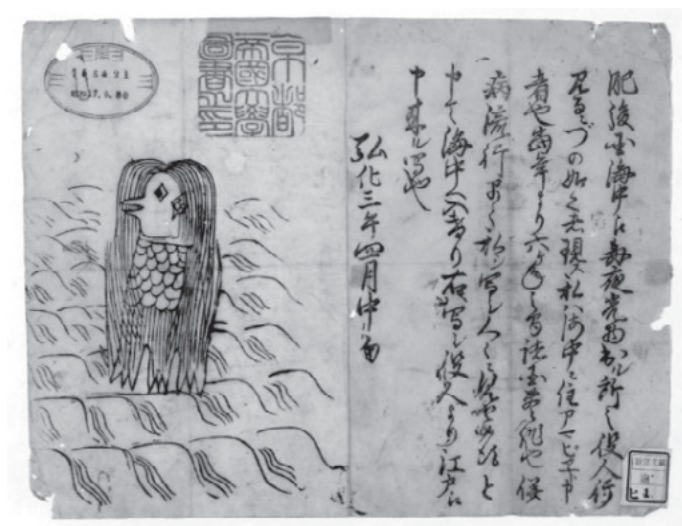 肥後国海中江毎夜光物出ル所之役人行
見るニづの如く者現ス私ハ海中ニ住アマビヱト申
者也当年より六ヶ年之間諸国豊作也併
病流行早々私ヲ写シ人々ニ見セ候得と
申て海中へ入けり右写シ役人より江戸江
申来ル写也
弘化三年四月中旬
京都
帝國大學
圖書之印